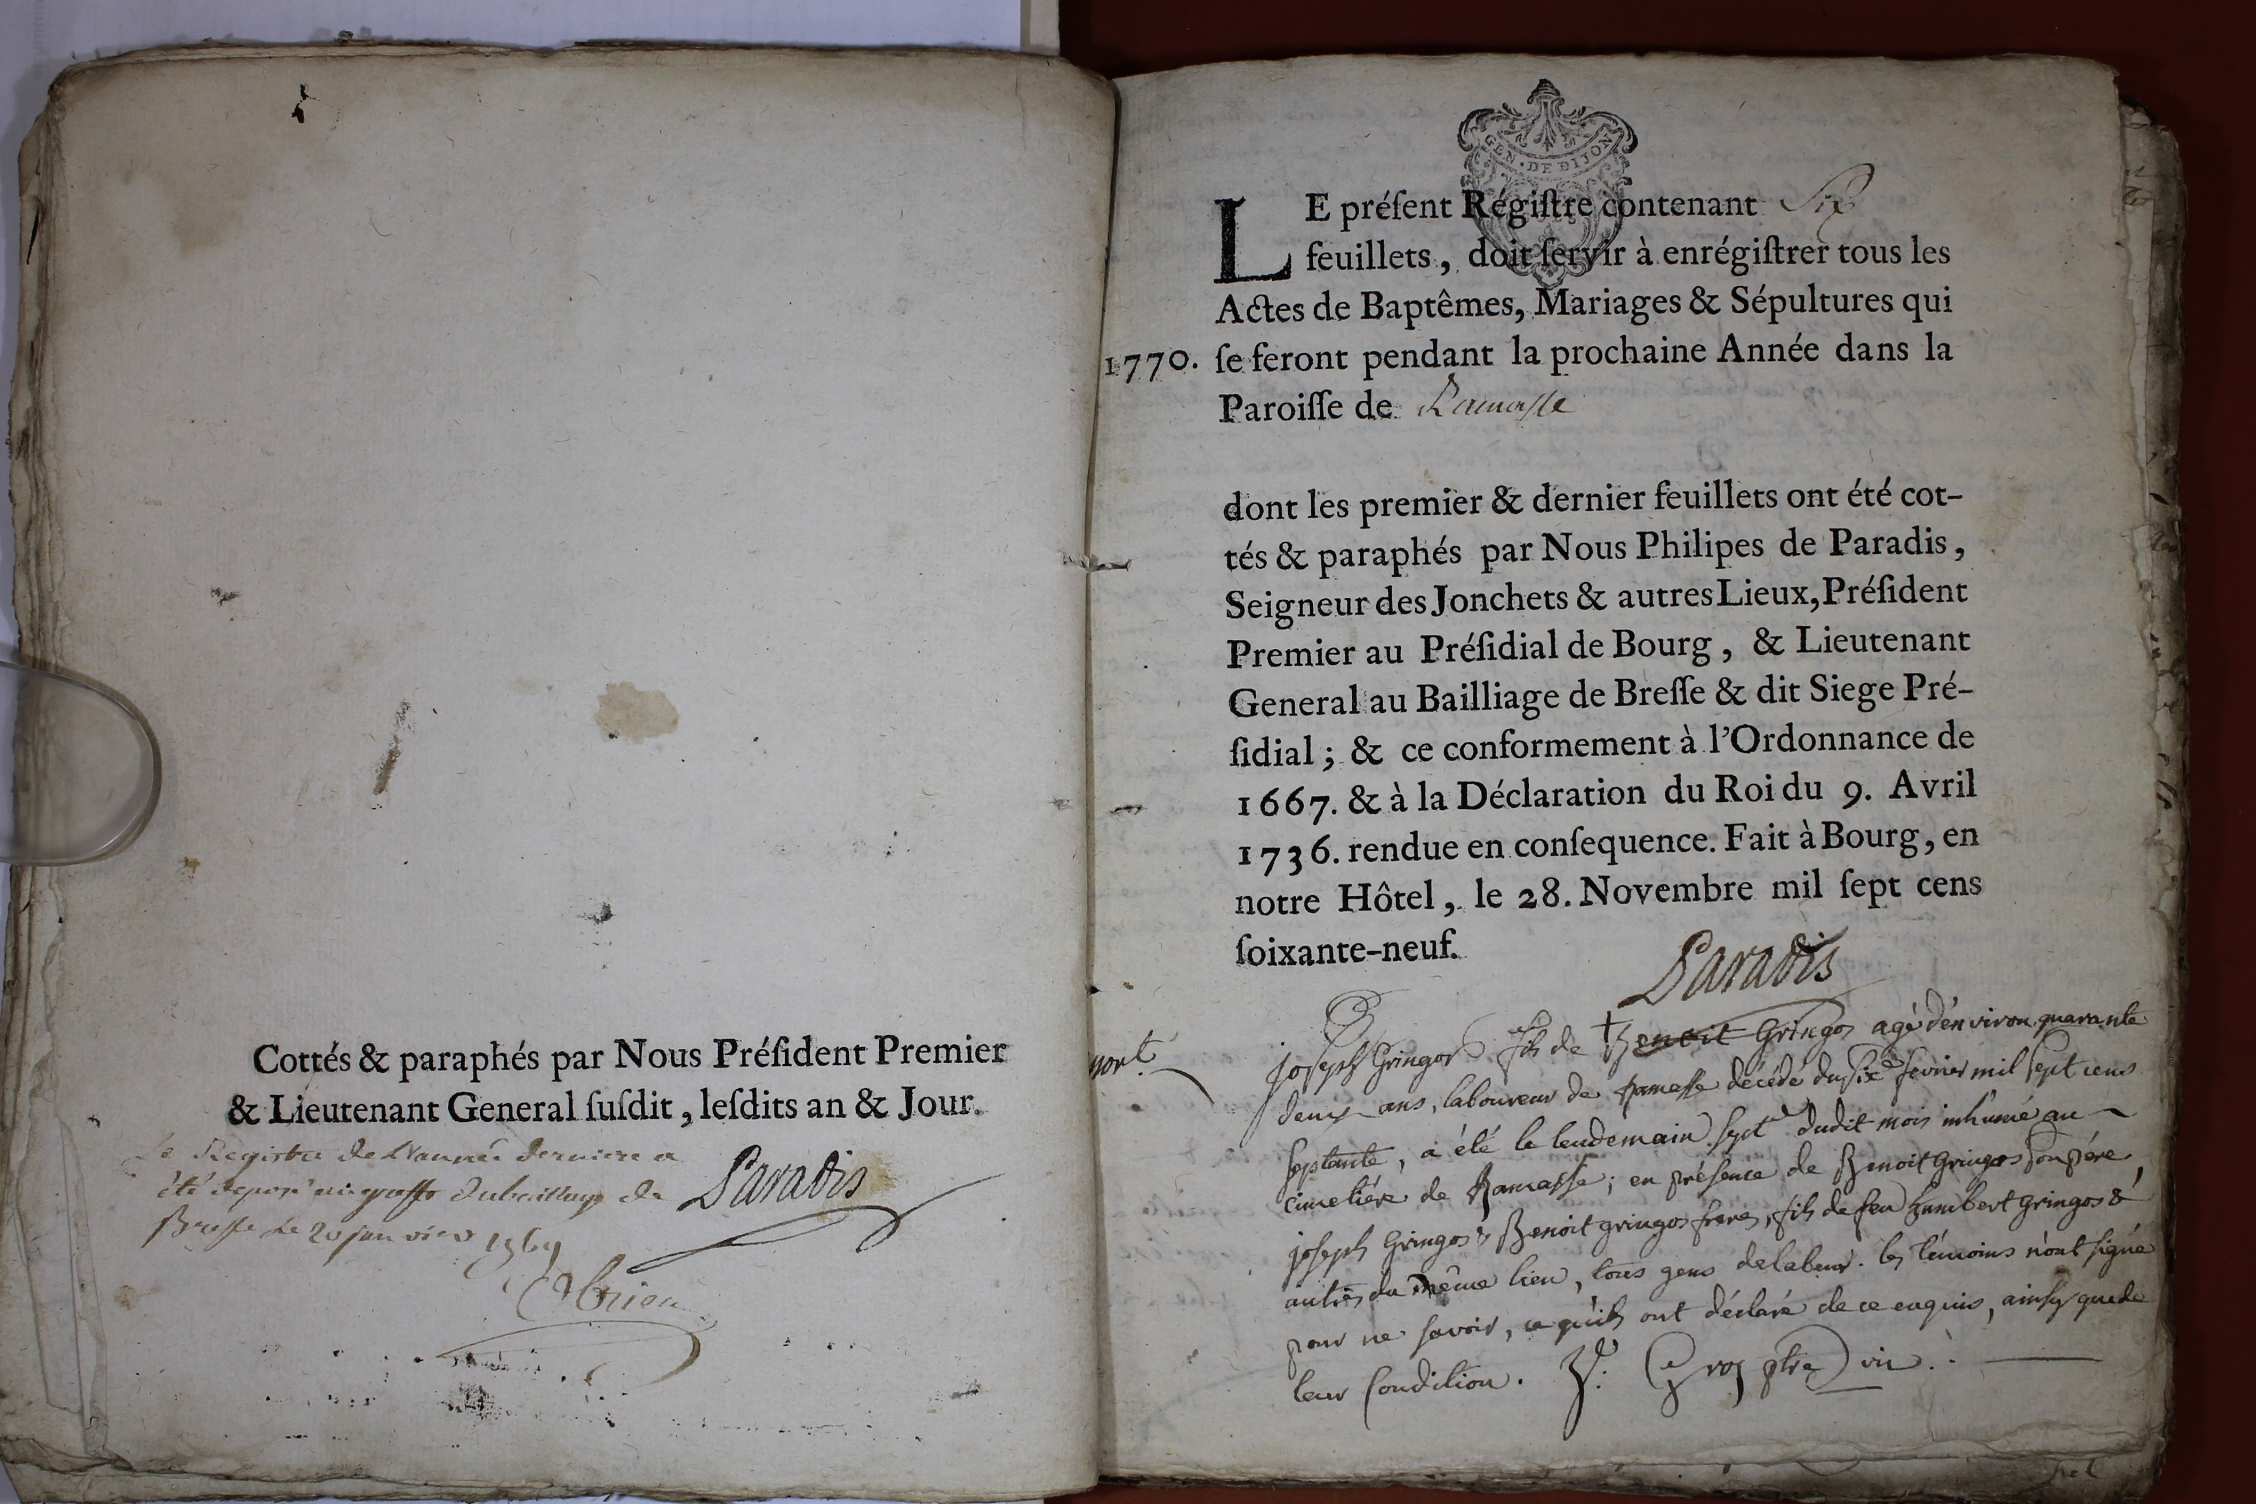 Cottés & paraphés par Nous Préſident Premier
& Lieutenant General ſuſdit, leſdits an & Jour.
Le Registre de L'année derniere a
été deposé au greffe du bailliage de
Bresse le 20 janvier 1769
Paradis
GEN. DE DIJON
LE préſent Régiſtre contenant Six
feuillets, doit ſervir à enrégiſtrer tous les
Actes de Baptêmes, Mariages & Sépultures qui
1770. ſe feront pendant la prochaine Année dans la
Paroiſſe de Ramasse
dont les premier & dernier feuillets ont été cot-
tés & paraphés par Nous Philipes de Paradis,
Seigneur des Jonchets & autres Lieux, Préſident
Premier au Préſidial de Bourg, & Lieutenant
General au Bailliage de Breſſe & dit Siege Pré-
ſidial; & ce conformement à l'Ordonnance de
1667. & à la Déclaration du Roi du 9. Avril
1736. rendue en conſequence. Fait à Bourg, en
notre Hôtel, le 28. Novembre mil ſept cens
ſoixante-neuf.
Paradis
mort.
joseph Gringoz fils de Benoit Gringoz agé d'environ quarante
deux ans, laboureur de Ramasse décédé du six février mil sept cens
septante, a été le lendemain sept dudit mois inhumé au
cimetière de Ramasse; en présence de Benoit Gringos son père,
joseph Gringos & Benoit gringos freres, fils de feu humbert gringos &
autres du même lieu, tous gens de labeur. les témoins n'ont signé
pour ne savoir, ce qu'ils ont déclaré de ce enquis, ainsy que de
leur Condition. Groz ptre vic.